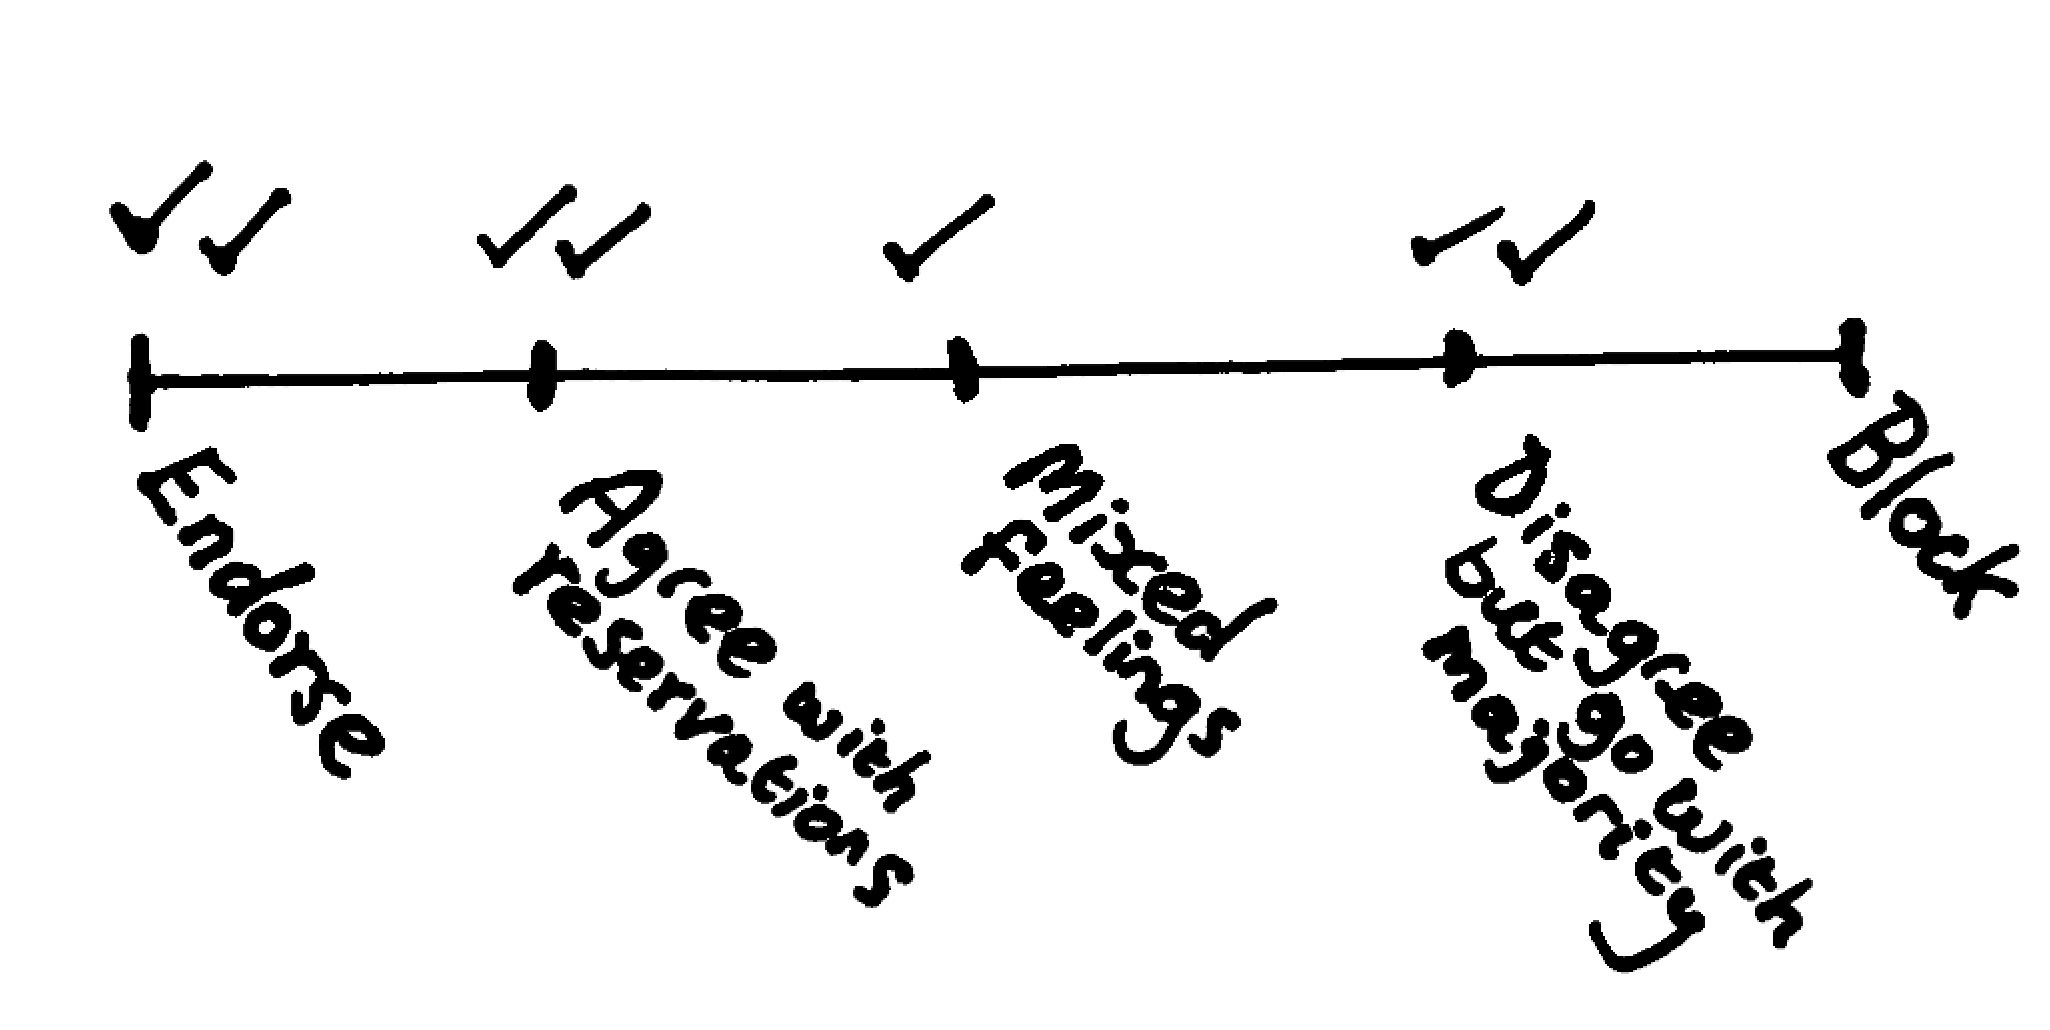 Endorse
Agree with
reservations
Mixed
feelings
Disagree
but go with
majority
Block